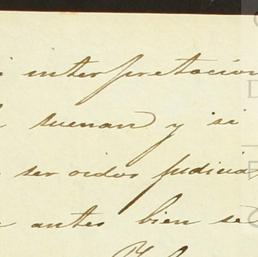 interpretación
suenan y si
ser oidos judicia
antes bien se